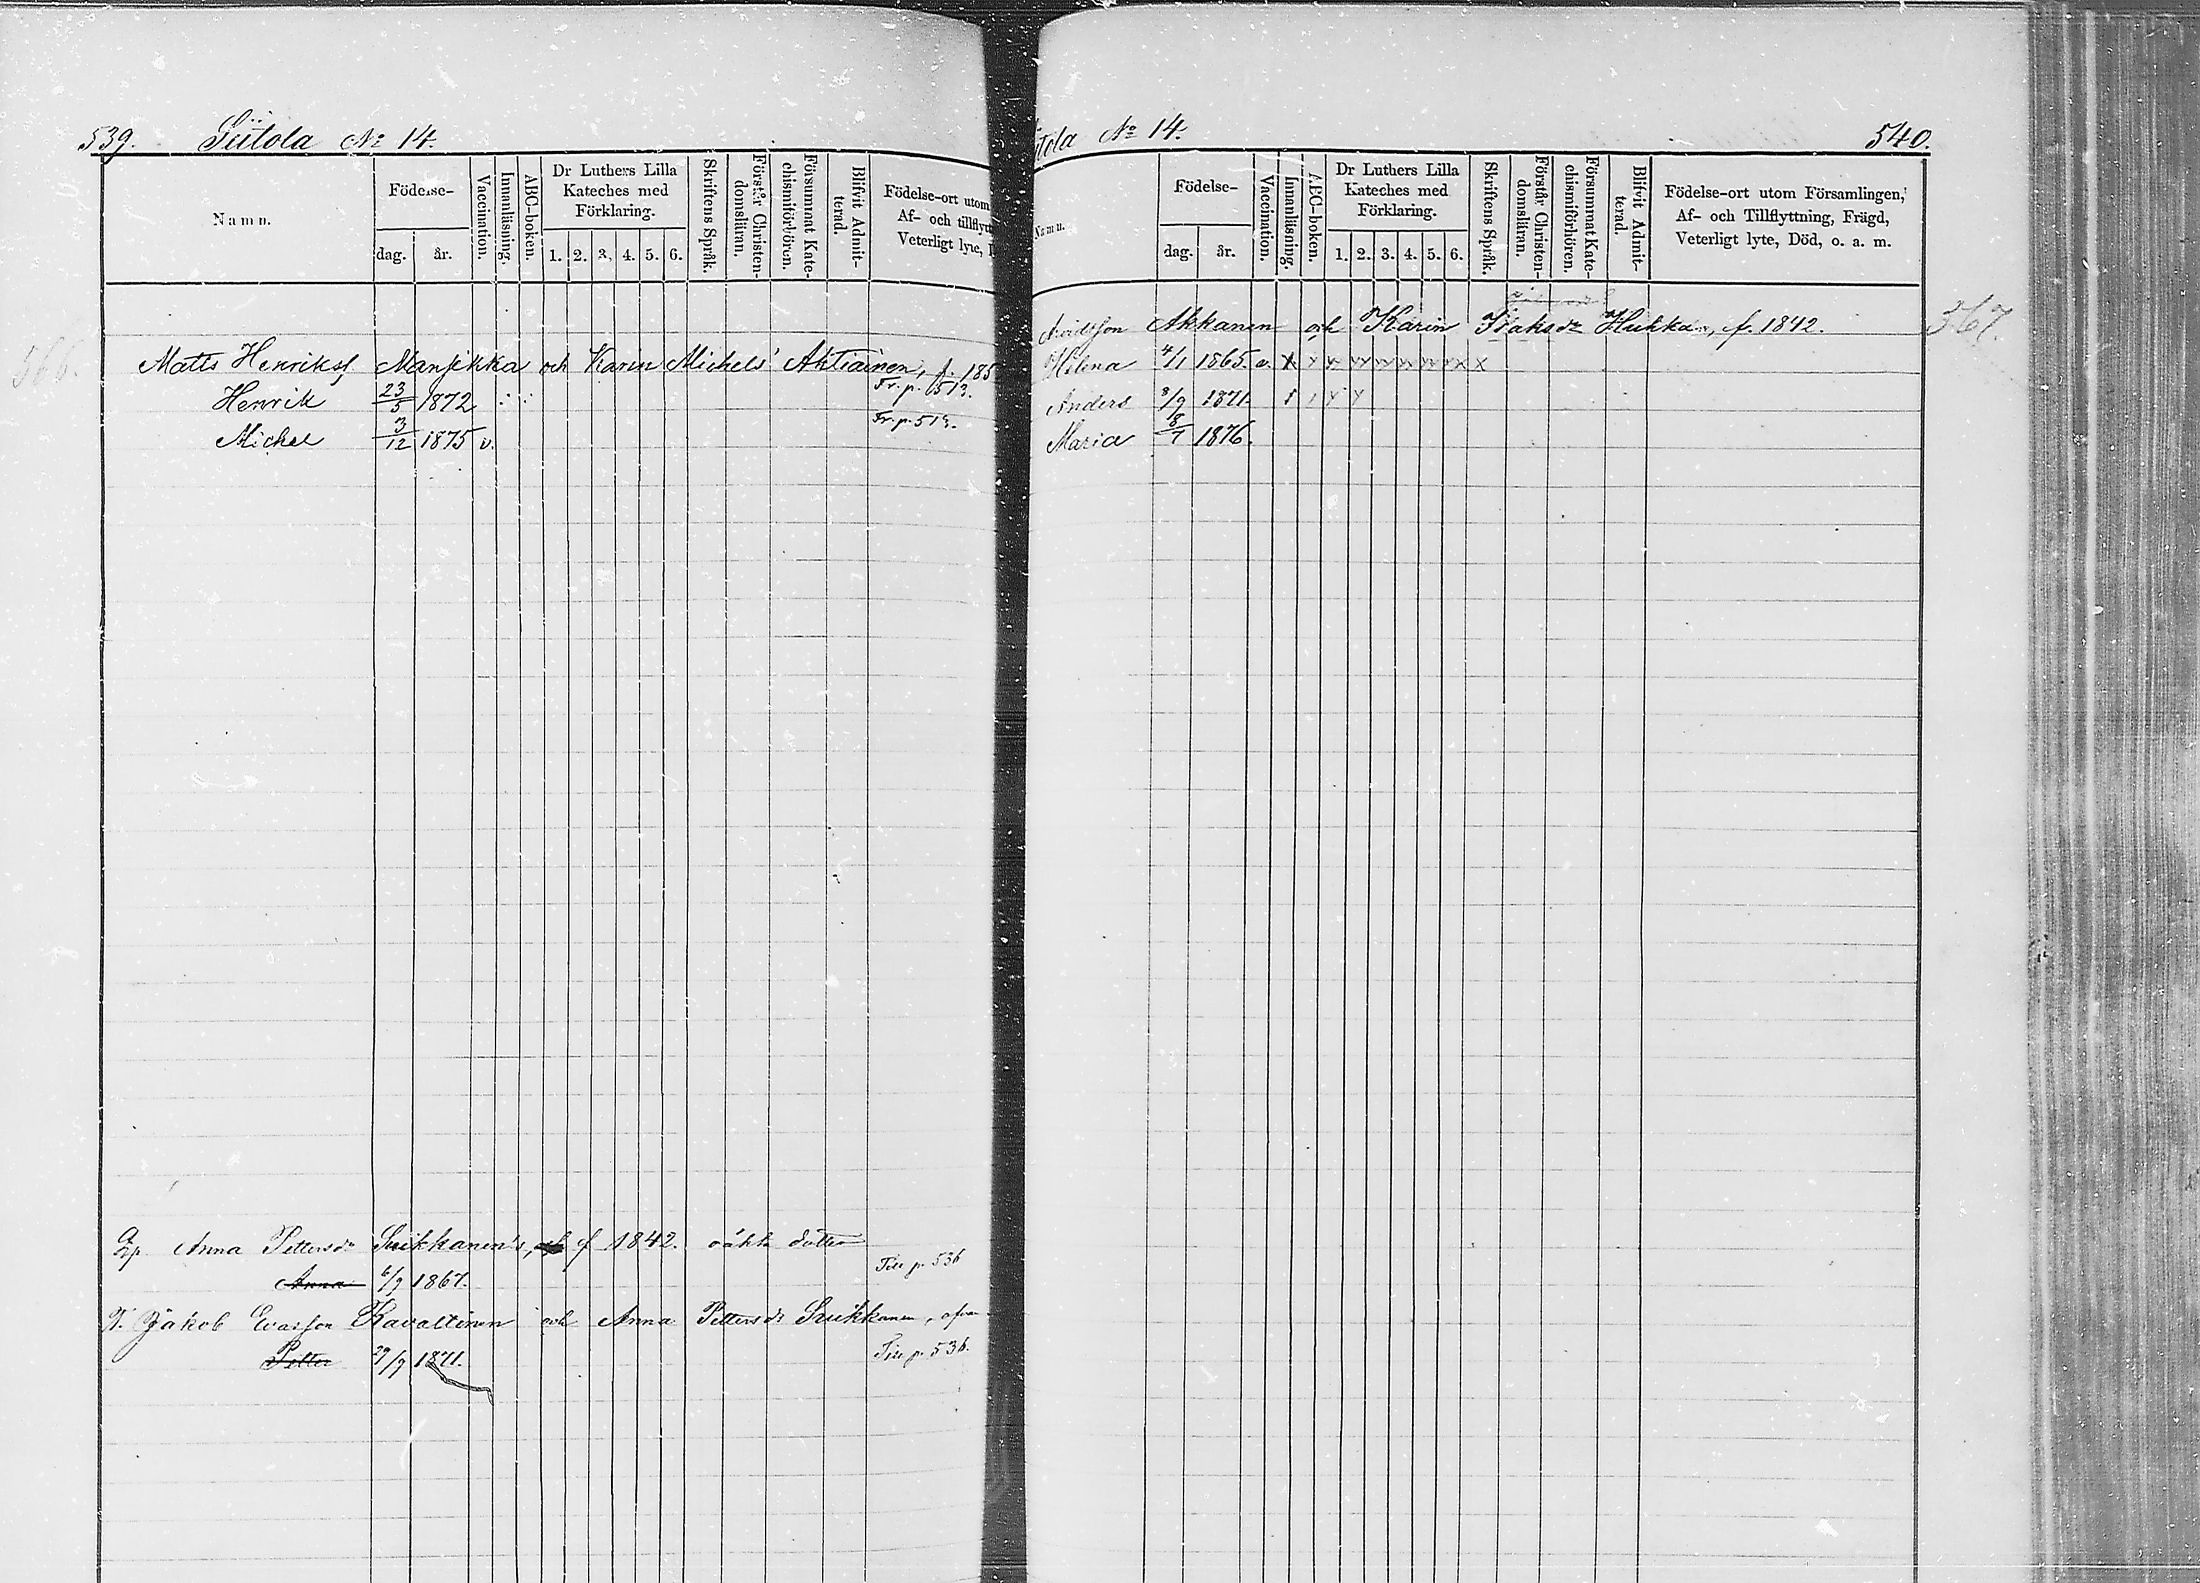 539. Siitola № 14.
Namn.
Födelse-
dag. år.
Vaccination.
Innanläsning.
ABC-boken.
Dr Luthers Lilla Kateches med Förklaring.
1. 2. 3. 4. 5. 6.
Skriftens Språk.
Förstår Christen-domsläran.
Försummat Kate-chismiförhören.
Blifvit Admit-terad.
Födelse-ort utom
Af- och tillflytt
Veterligt lyte,
566.
Matts Henrikss Mansikka och Karin Michels Aktiainen, f. 185
Henrik 23/5 1872 Fr. p. 513.
Michel 3/12 1875 v. Fr. p. 513.
Anna Pettersdr Suikkanen's, f 1842. oäkta dotter
Anna 6/9 1867. Till p. 536
T. Jakob Evasson Kavaltinen och Anna Pettersdr Suikkanen,
Petter 29/9 1871. Till p. 536.
tola № 14. 540.
Namn.
Födelse-
dag. år.
Vaccination.
Innanläsning.
ABC-boken.
Dr Luthers Lilla Kateches med Förklaring.
1. 2. 3. 4. 5. 6.
Skriftens Språk.
Förstår Christen-domsläran.
Försummat Kate-chismiförhören.
Blifvit Admit-terad.
Födelse-ort utom Församlingen,
Af- och Tillflyttning, Frägd,
Veterligt lyte, Död, o. a. m.
Arvidsson Akkanen och Karin Isaksdr Hukka, f. 1842. 567.
Helena 4/1 1865. v.
Anders 3/9 1871.
Maria 8/7 1876.